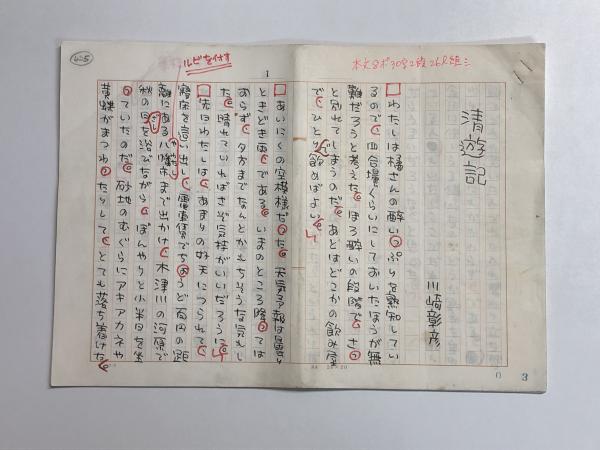 清遊記
川崎彰彦
わたしは橘さんの酔いっぷりを熟知してい
るので、四合壜くらいにしておいたほうが無
難だろうと考えた。ほろ酔いの段階で、さっ
と別れてしまうのだ。あとはどこかの飲み屋
で、ひとり飲めばよい。
1
あいにくの空模様だった。天気予報は曇り
ときどき雨である。いまのところ降っては
おらず、夕方までなんとかもちそうな気もし
た。晴れていればさぞ気持がいいだろうに。
先日わたしは、あまりの好天につられて、
寝床を這い出し、電車賃でちょうど百円の距
離にある八幡市まで出かけ、木津川の河原で
秋の日を浴びながら、ぼんやりと小半日を坐
っていたのだ。砂地のむぐらにアキアカネや
黄蝶がまつわったりして、とても落ち着けた。
ルビを付す
本文8ポ30字2段26L組
3